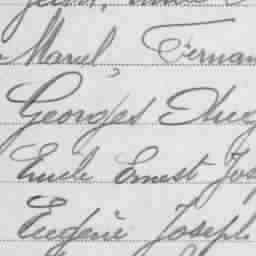 Marcel, Fernan
Georges Aug
Emile Ernest Jos
Eugène Joseph